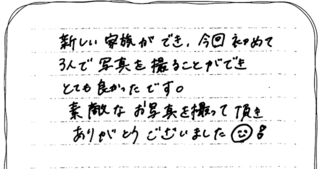 新しい家族ができ、今回初めて
3人で写真を撮ることができ
とても良かったです。
素敵なお写真を撮って頂き
ありがとうございました